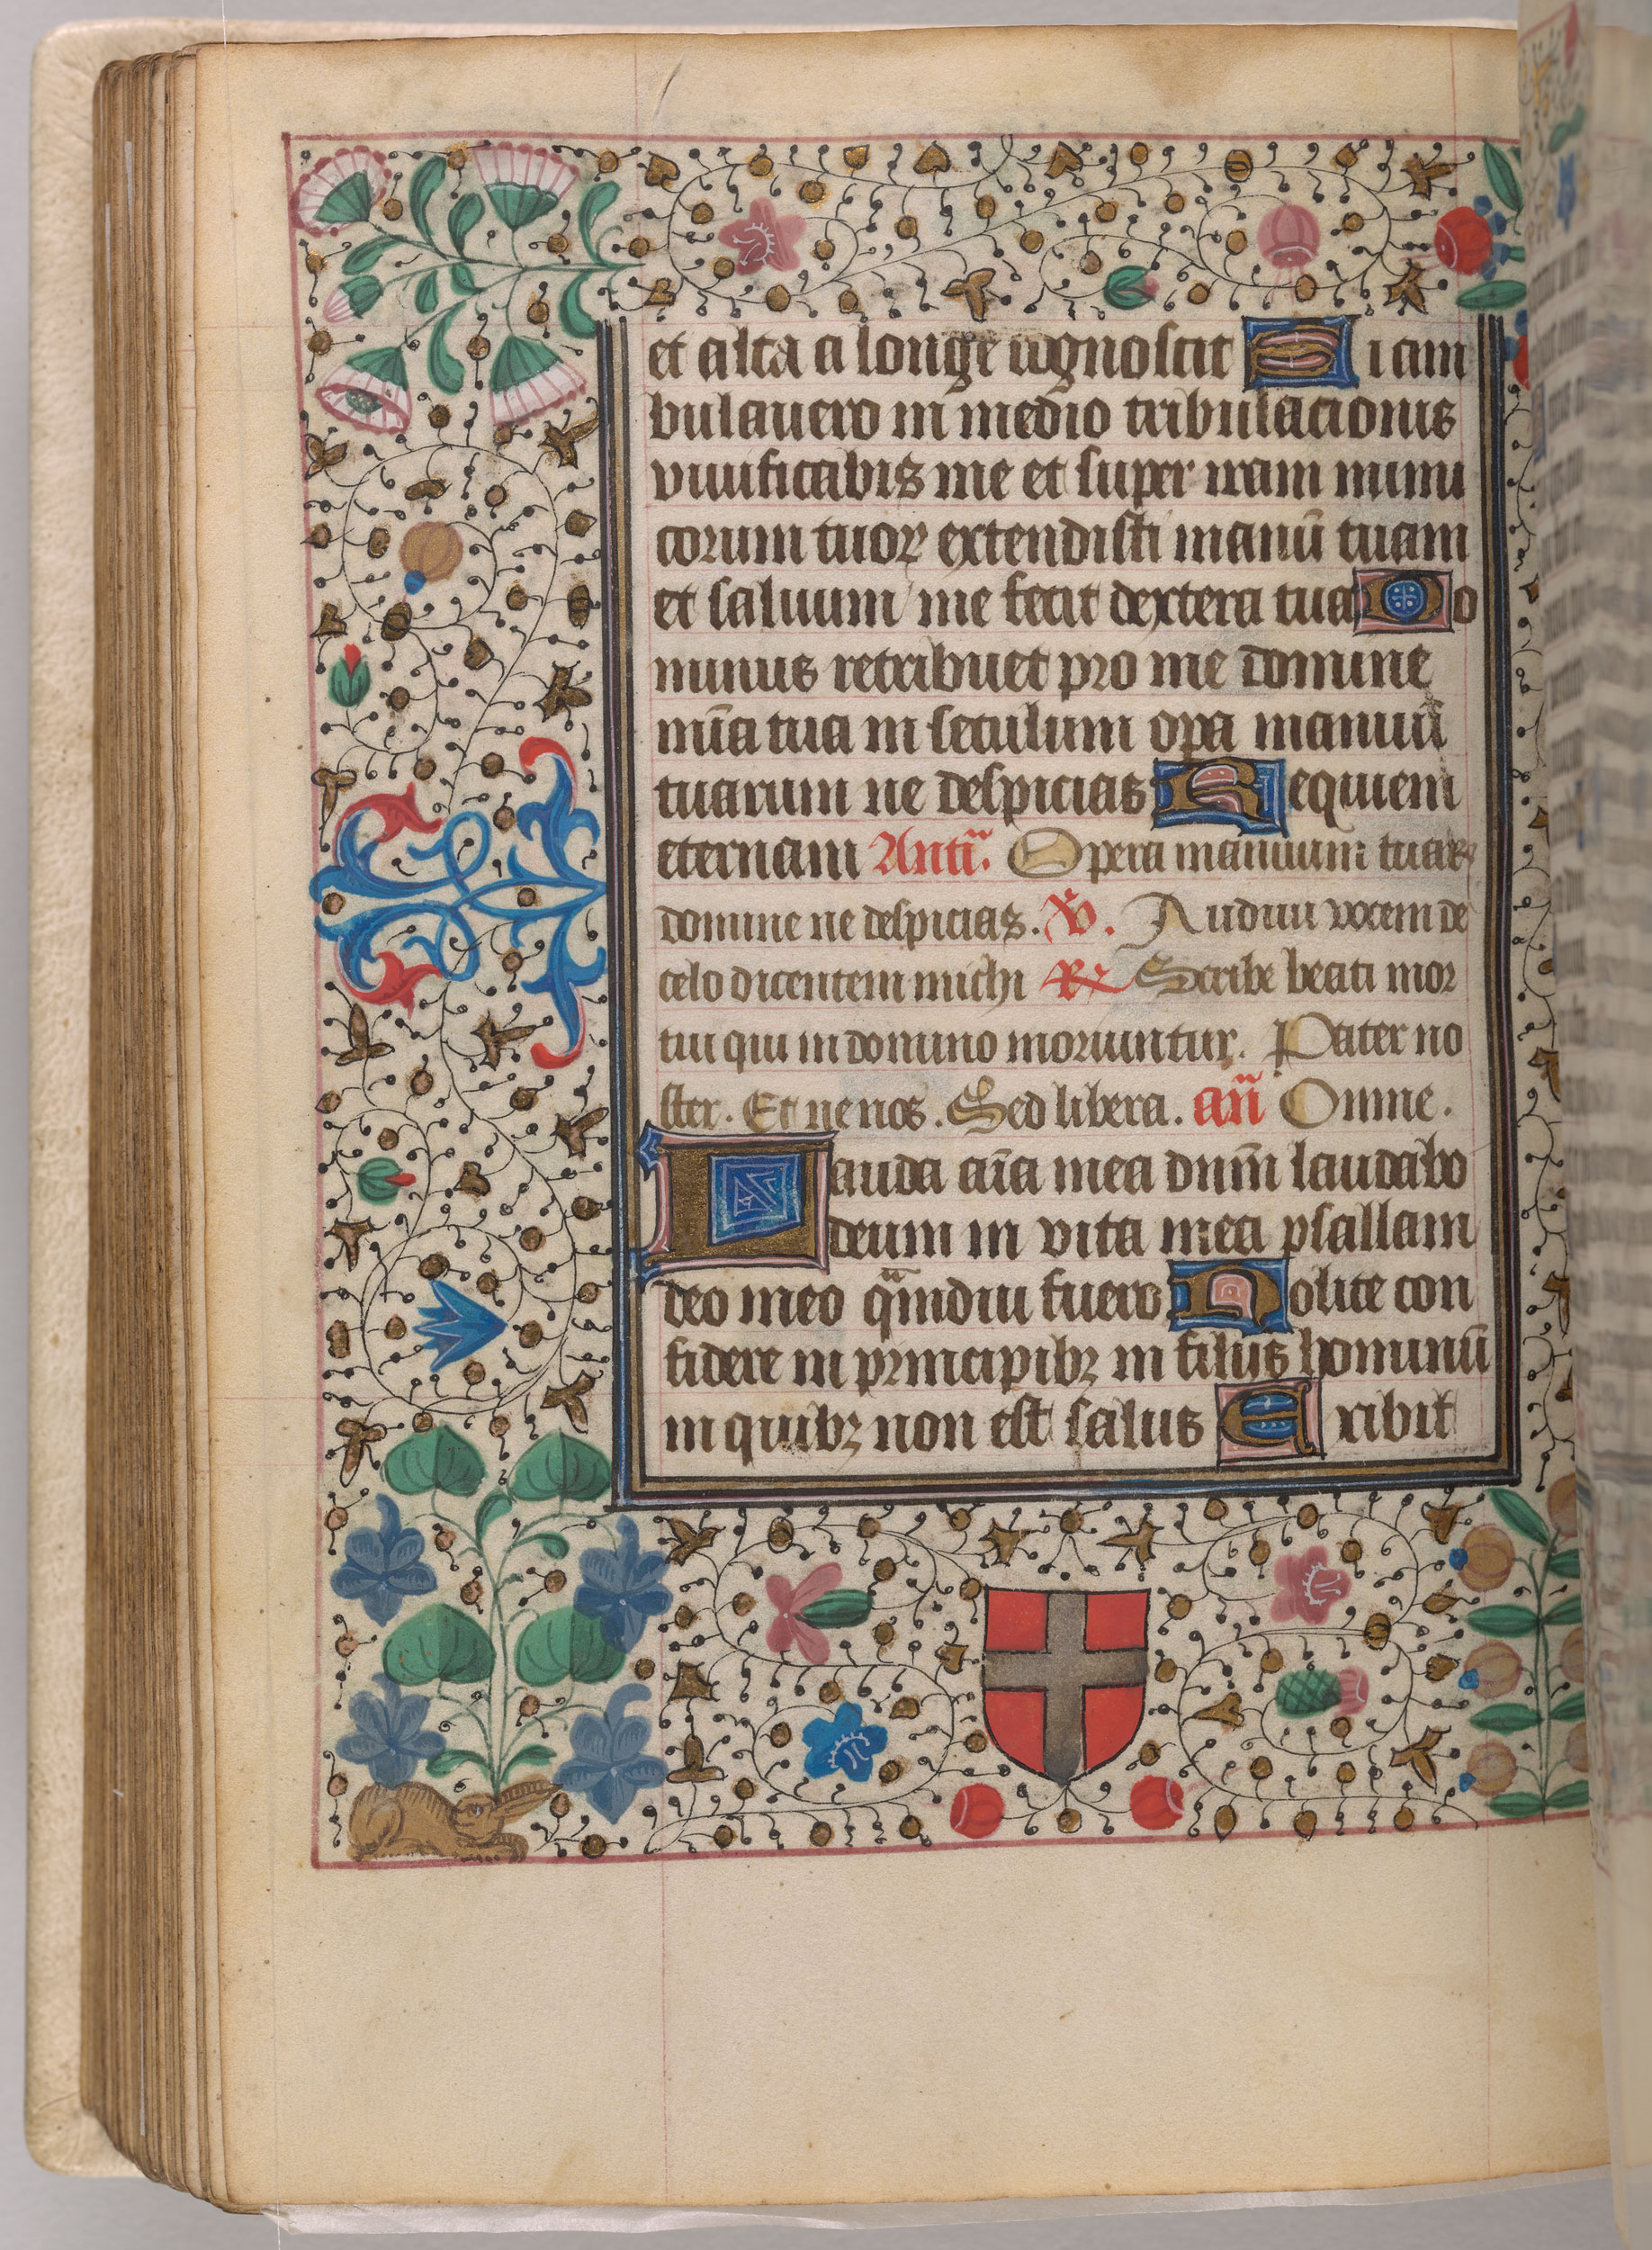 et alta a longe cognoscit Si am
bulauero in medio tribulacionis
viuificabis me et super iram inimi
corum tuoꝝ extendisti manū tuam
et saluum me fecit dextera tua Do
minus retribuet pro me domine
mīa tua in seculum oꝑa manuū
tuarum ne despicias Requiem
eternam Antī. Opera manuum tuaꝝ
domine ne despicias. V. Audiui vocem de
celo dicentem michi ℟ Scribe beati mor
tui qui in domino moriuntur. Pater no
ster. Et ne nos. Sed libera. añ Omne.
Lauda aīa mea dnm̄ laudabo
deum in vita mea psallam
deo meo qͣmdiu fuero Nolite con
fidere in principibꝫ in filiis hominū
in quibꝫ non est salus Exibit